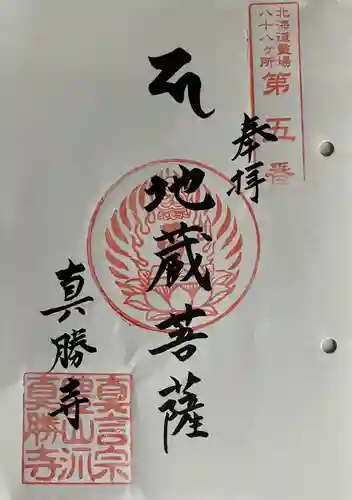 北海道霊場
八十八ヶ所
第五番
奉拝
地蔵菩薩
真勝寺
真言宗
豊山派
真勝寺